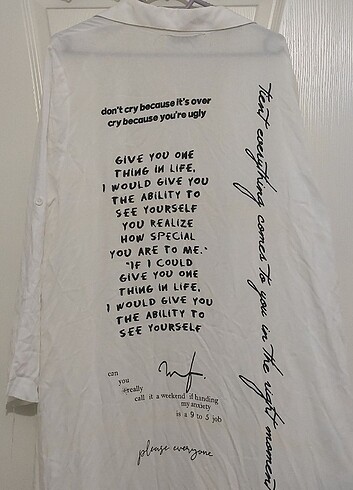 don't cry because it's over
cry because you're ugly
GIVE YOU ONE
THING IN LIFE,
I WOULD GIVE YOU
THE ABILITY TO
SEE YOURSELF
YOU REALIZE
HOW SPECIAL
YOU ARE TO ME."
"IF I COULD
GIVE YOU ONE
THING IN LIFE,
I WOULD GIVE YOU
THE ABILITY TO
SEE YOURSELF
can
you
really
call it a weekend if handing
my anxiety
is a 9 to 5 job
please everyone
everything comes to you in the right moment